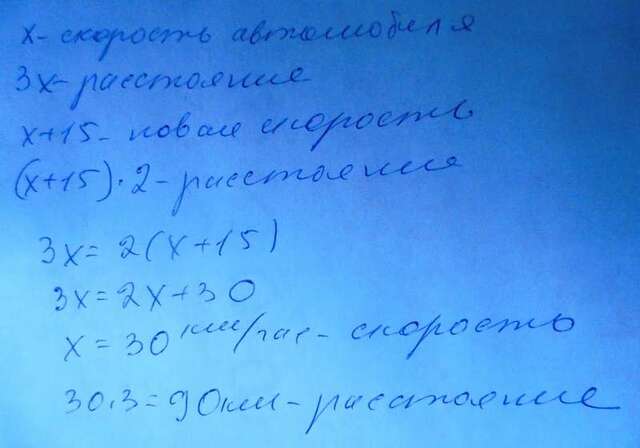 x - скорость автомобиля
3x - расстояние
x+15 - новая скорость
(x+15)·2 - расстояние
3x = 2(x+15)
3x = 2x+30
x = 30 км/час - скорость
30·3=90км - расстояние